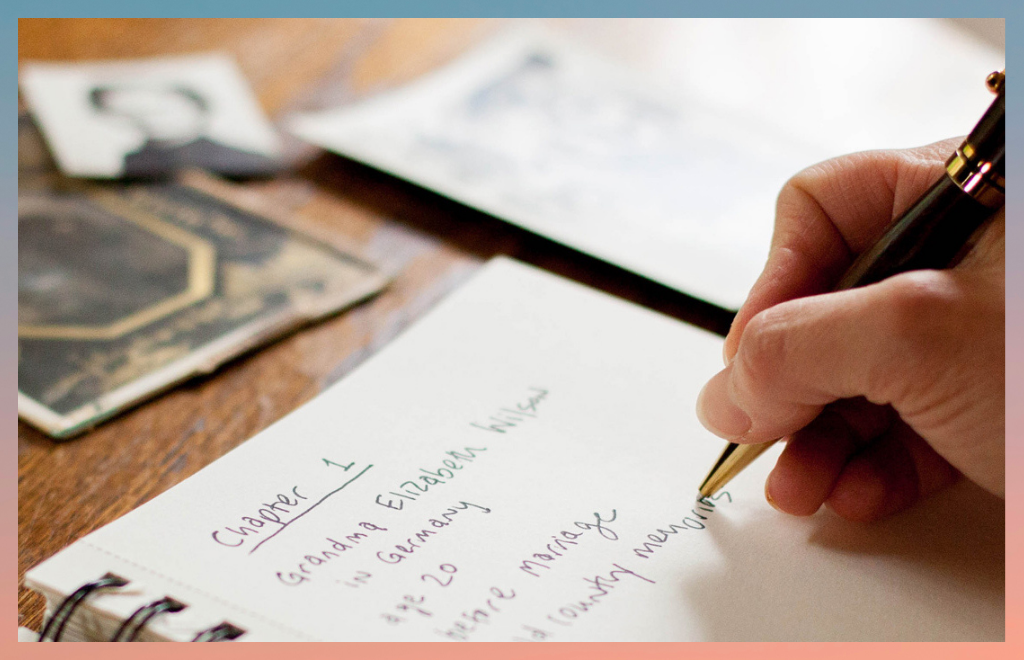 Chapter 1
Grandma Elizabeth Wilson
in Germany
age 20
before marriage
country memories